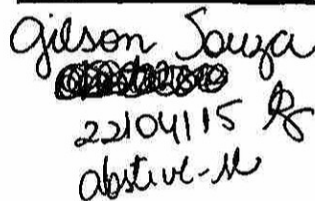 Gilson Souza
22/04/15
absteve-se